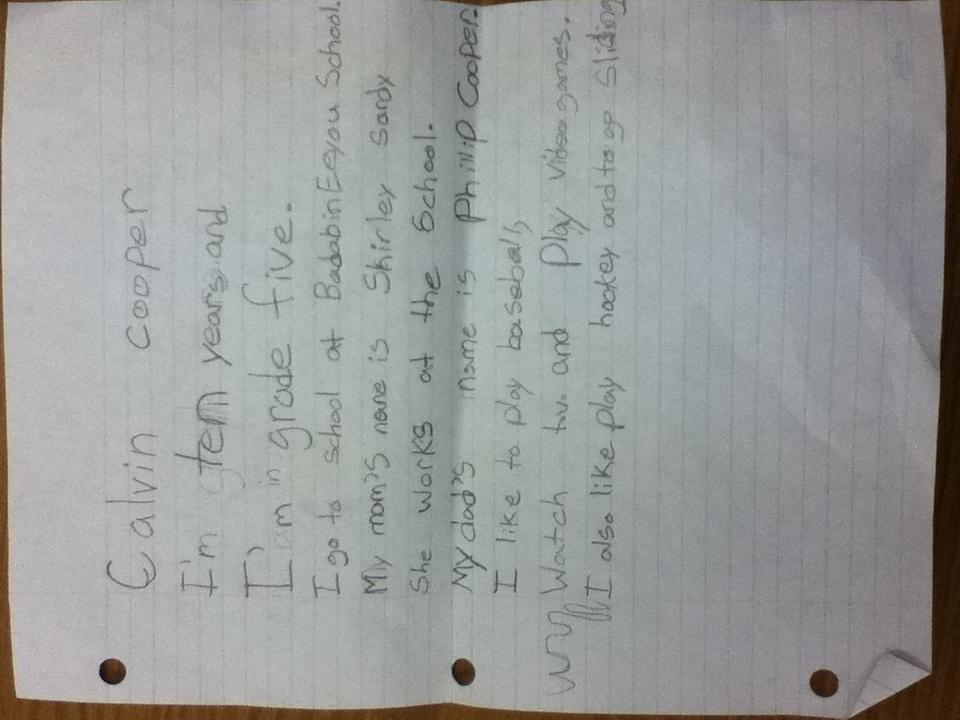 Calvin cooper
I'm ten years and
I'm in grade five.
I go to school at Badabin Eeyou School.
My mom's name is Shirley Sandy
She works at the School.
My dad's name is Phillip Cooper.
I like to play baseball,
Watch tv. and Play videogames.
I also like play hockey and to go Sliding